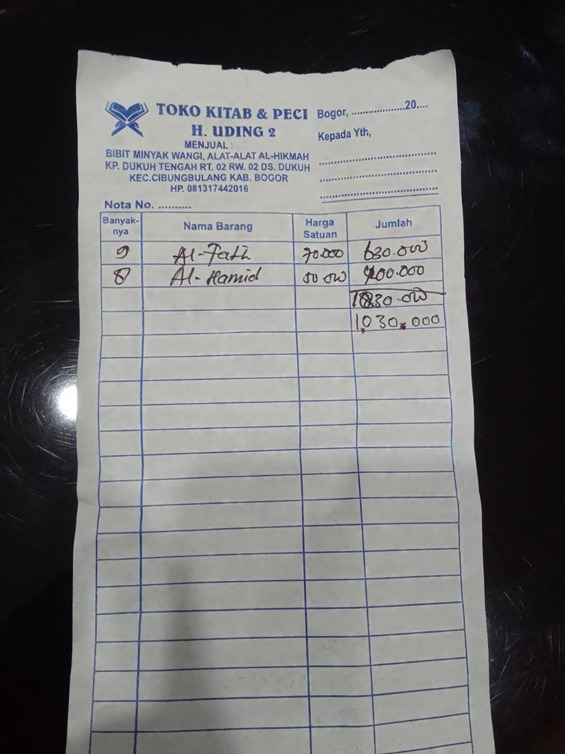 TOKO KITAB & PECI
H. UDING 2
MENJUAL :
BIBIT MINYAK WANGI, ALAT-ALAT AL-HIKMAH
KP. DUKUH TENGAH RT. 02 RW. 02 DS. DUKUH
KEC.CIBUNGBULANG KAB. BOGOR
HP. 081317442016
Bogor, ....................20....
Kepada Yth,
Nota No. ..........
Banyak-nya Nama Barang Harga Satuan Jumlah
9 Al-Fath 70.000 630.000
8 Al-Hamid 50.000 400.000
1.030.000